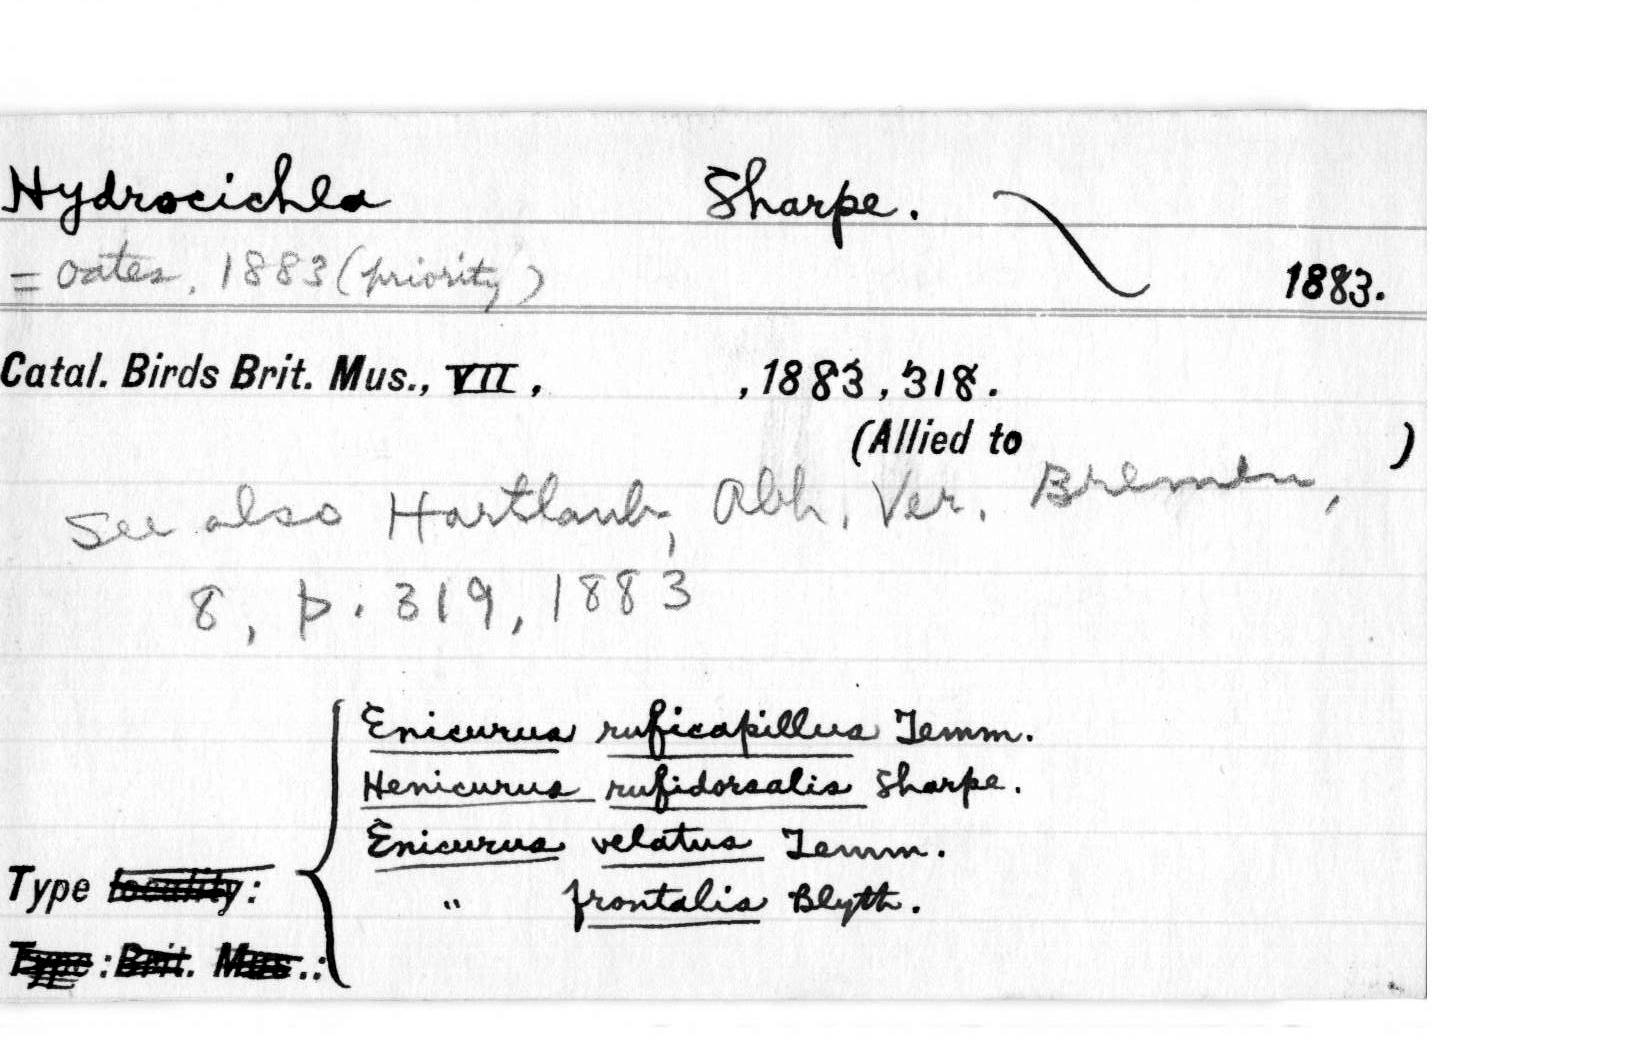 Hydrocichla Sharpe.
= Oates, 1883 (priority) 1883.
Catal. Birds Brit. Mus., VII, , 1883, 318.
(Allied to )
See also Hartlaub, Abh. Ver. Bremen,
8, p. 319, 1883
Enicurus ruficapillus Temm.
Henicurus rufidorsalis Sharpe.
Enicurus velatus Temm.
Type locality: " frontalis Blyth.
Type: Brit. Mus.: